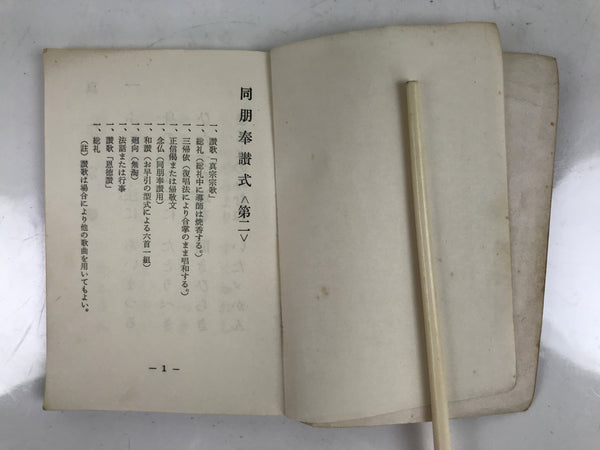 同朋奉讃式<第二>
一、讃歌「真宗宗歌」
一、総礼(総礼中に導師は焼香する。)
一、三帰依(復唱法により合掌のまま唱和する。)
一、正信偈または帰敬文
一、念仏(同朋奉讃用)
一、和讃(お早引の型式による六首一組)
一、廻向(無淘)
一、法話または行事
一、讃歌「恩徳讃」
一、総礼
(註)讃歌は場合により他の歌曲を用いてもよい。
— 1 —